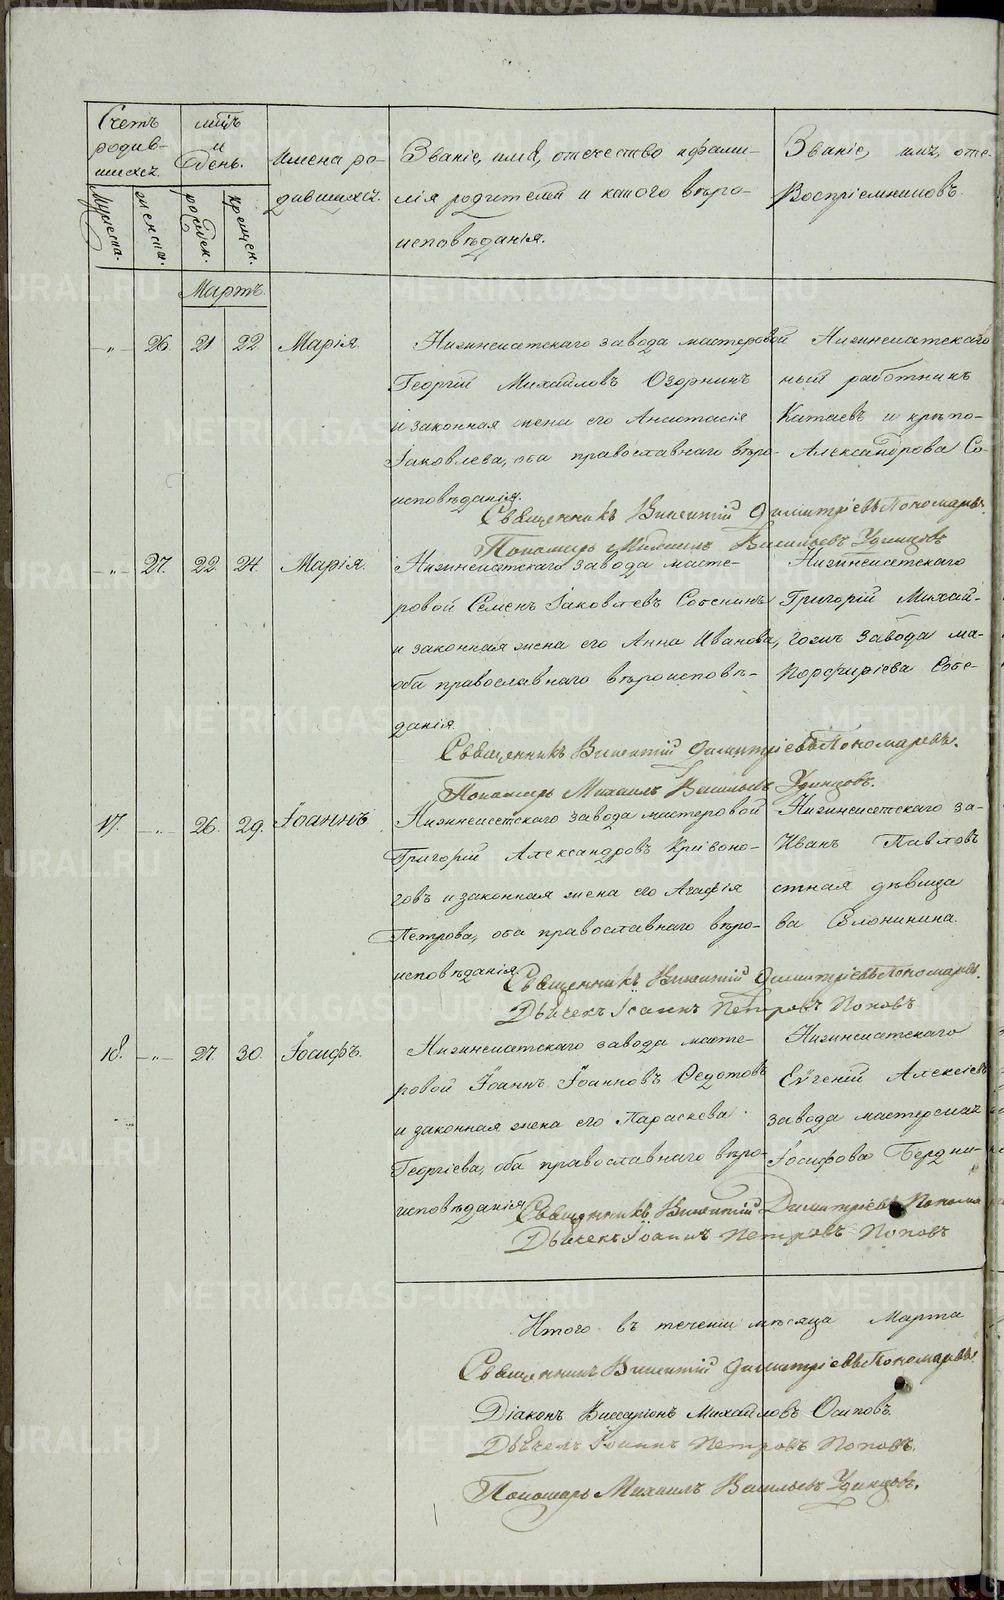 Счетъ родив-шихся.
Мужеска.
женска.
мѣц и день.
рожден.
крещен.
Имена ро-
дившихся.
Званіе, имя, отечество и фами-
лія родителей и какого вѣро-
исповѣданія.
Званіе, имя, оте-
Воспріемниковъ.
Мартъ.
-„- 26. 21 22 Марія.
Нижнеисетскаго завода мастеровой
Георгій Михайловъ Озорнинъ
и законная жена его Анастасія
Іаковлева, оба православнаго вѣро-
исповѣданія.
Нижнеисетскаго
ный работникъ
Катаевъ и крѣпо-
Александрова Со-
Священникъ Викентій Димитріевъ Пономаревъ.
Пономарь Михаилъ Васильевъ Удинцовъ
-„- 27. 22 24. Марія.
Нижнеисетскаго завода масте-
ровой Семенъ Іаковлевъ Сотенинъ
и законная жена его Анна Иванова,
оба православнаго вѣроисповѣ-
данія.
Нижнеисетскаго
Григорій Михай-
гожъ завода ма-
Порфиріева Соте-
Священникъ Викентій Димитріевъ Пономаревъ.
Пономарь Михаилъ Васильевъ Удинцовъ.
17. -„- 26. 29. Іоаннъ
Нижнеисетскаго завода мастеровой
Григорій Александровъ Кривоно-
говъ и законная жена его Агафія
Петрова, оба православнаго вѣро-
исповѣданія.
Нижнеисетскаго за-
Иванъ Павловъ
стная дѣвица
ва Солонинина.
Священникъ Викентій Димитріевъ Пономаревъ.
Дьячекъ Іоаннъ Петровъ Поповъ
18. -„- 27. 30. Іосифъ.
Нижнеисетскаго завода масте-
ровой Іоаннъ Іоанновъ Ѳедотовъ
и законная жена его Параскева
Георгіева, оба православнаго вѣро-
исповѣданія.
Нижнеисетскаго
Евгеній Алексѣевъ
завода мастерская
Іосифова Бердни-
Священникъ Викентій Димитріевъ Понома
Дьячекъ Іоаннъ Петровъ Поповъ
Итого въ теченіи мѣсяца Марта
Священникъ Викентій Димитріевъ Пономаревъ.
Діаконъ Виссаріонъ Михайловъ Осиповъ.
Дьячекъ Іоаннъ Петровъ Поповъ.
Пономарь Михаилъ Васильевъ Удинцовъ.
METRIKI.GASO-URAL.RU